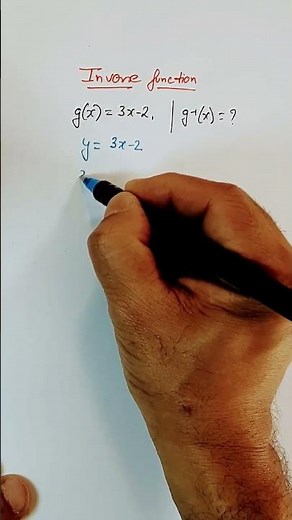 Inverse function
g(x) = 3x-2, | g⁻¹(x) = ?
y = 3x-2